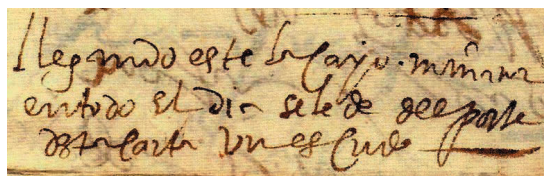 llegando este lacayo. mañana
en todo el dia se le de de porte
desta carta un escudo